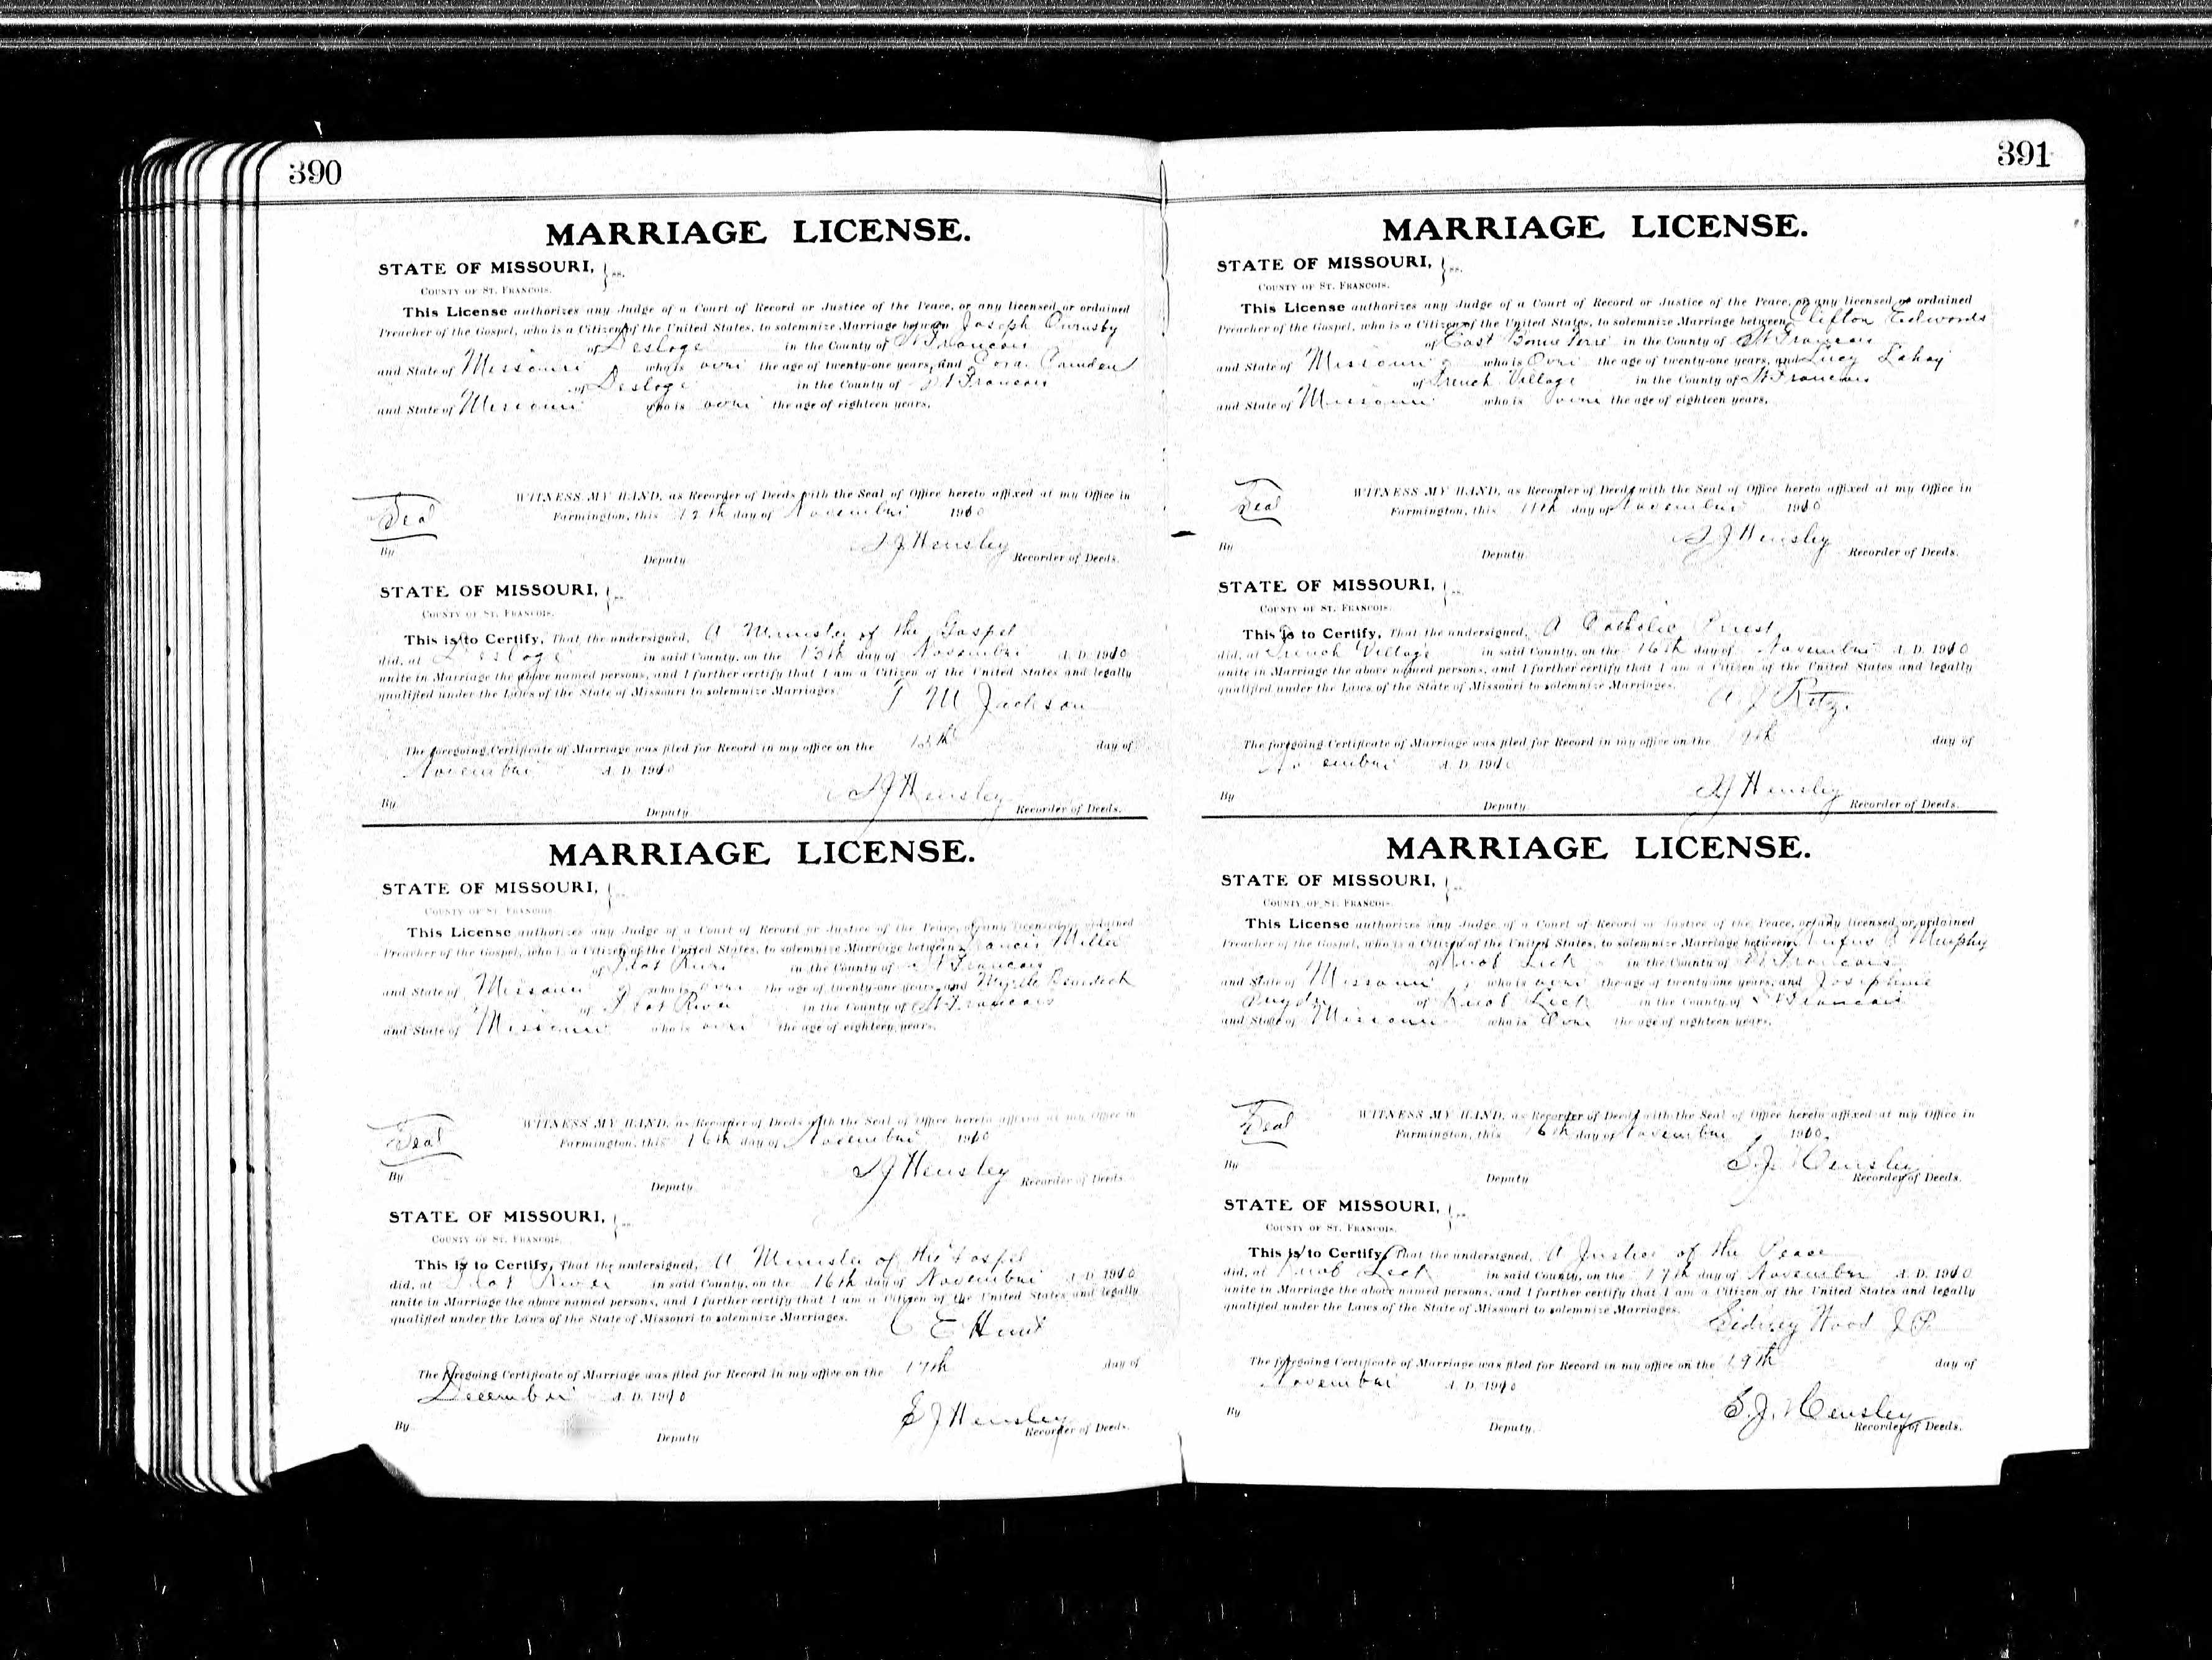 390
MARRIAGE LICENSE.
STATE OF MISSOURI, } ss.
COUNTY OF ST. FRANCOIS.
This License authorizes any Judge of a Court of Record or Justice of the Peace, or any licensed or ordained
Preacher of the Gospel, who is a Citizen of the United States, to solemnize Marriage between Joseph
of Desloge in the County of St Francois
and State of Missouri who is over the age of twenty-one years, and Camden
of Desloge in the County of St Francois
and State of Missouri who is over the age of eighteen years.
WITNESS MY HAND, as Recorder of Deeds with the Seal of Office hereto affixed at my Office in
Seal
Farmington, this 12th day of November 1910
By Deputy S J Hensley Recorder of Deeds.
STATE OF MISSOURI, } ss.
COUNTY OF ST. FRANCOIS.
This is to Certify, That the undersigned, A Minister of the Gospel
did, at Desloge in said County, on the 13th day of November A. D. 1910
unite in Marriage the above named persons, and I further certify that I am a Citizen of the United States and legally
qualified under the Laws of the State of Missouri to solemnize Marriages.
M Jackson
The foregoing Certificate of Marriage was filed for Record in my office on the day of
November A. D. 1910
By Deputy S J Hensley Recorder of Deeds.
MARRIAGE LICENSE.
STATE OF MISSOURI, } ss.
COUNTY OF ST. FRANCOIS
This License authorizes any Judge of a Court of Record or Justice of the Peace, or any licensed or ordained
Preacher of the Gospel, who is a Citizen of the United States, to solemnize Marriage between Francis Miller
of Flat River in the County of St Francois
and State of Missouri who is over the age of twenty-one years, and Myrtle
of Flat River in the County of St Francois
and State of Missouri who is over the age of eighteen years.
WITNESS MY HAND, as Recorder of Deeds with the Seal of Office hereto affixed at my Office in
Seal
Farmington, this 16th day of November 1910
By Deputy S J Hensley Recorder of Deeds.
STATE OF MISSOURI, } ss.
COUNTY OF ST. FRANCOIS.
This is to Certify, That the undersigned, A Minister of the Gospel
did, at Flat River in said County, on the 16th day of November A. D. 1910
unite in Marriage the above named persons, and I further certify that I am a Citizen of the United States and legally
qualified under the Laws of the State of Missouri to solemnize Marriages.
C E Hunt
The foregoing Certificate of Marriage was filed for Record in my office on the 17th day of
December A. D. 1910
By Deputy S J Hensley Recorder of Deeds.
391
MARRIAGE LICENSE.
STATE OF MISSOURI, } ss.
COUNTY OF ST. FRANCOIS.
This License authorizes any Judge of a Court of Record or Justice of the Peace, or any licensed or ordained
Preacher of the Gospel, who is a Citizen of the United States, to solemnize Marriage between Clifton Edwards
of East Bonne Terre in the County of St Francois
and State of Missouri who is Over the age of twenty-one years, and Lucy Lahay
of French Village in the County of St Francois
and State of Missouri who is Over the age of eighteen years.
WITNESS MY HAND, as Recorder of Deeds with the Seal of Office hereto affixed at my Office in
Seal
Farmington, this 11th day of November 1910
By Deputy S J Hensley Recorder of Deeds.
STATE OF MISSOURI, } ss.
COUNTY OF ST. FRANCOIS.
This is to Certify, That the undersigned, A Catholic Priest
did, at French Village in said County, on the 16th day of November A. D. 1910
unite in Marriage the above named persons, and I further certify that I am a Citizen of the United States and legally
qualified under the Laws of the State of Missouri to solemnize Marriages.
A J
The foregoing Certificate of Marriage was filed for Record in my office on the day of
November A. D. 1910
By Deputy S J Hensley Recorder of Deeds.
MARRIAGE LICENSE.
STATE OF MISSOURI, } ss.
COUNTY OF ST. FRANCOIS.
This License authorizes any Judge of a Court of Record or Justice of the Peace, or any licensed or ordained
Preacher of the Gospel, who is a Citizen of the United States, to solemnize Marriage between Rufus Murphy
of Knob Lick in the County of St Francois
and State of Missouri who is over the age of twenty-one years, and Josephine
of Knob Lick in the County of St Francois
and State of Missouri who is Over the age of eighteen years.
WITNESS MY HAND, as Recorder of Deeds with the Seal of Office hereto affixed at my Office in
Seal
Farmington, this 16th day of November 1910.
By Deputy S. J. Hensley Recorder of Deeds.
STATE OF MISSOURI, } ss.
COUNTY OF ST. FRANCOIS.
This is to Certify, That the undersigned, A Justice of the Peace
did, at Knob Lick in said County, on the 17th day of November A. D. 1910
unite in Marriage the above named persons, and I further certify that I am a Citizen of the United States and legally
qualified under the Laws of the State of Missouri to solemnize Marriages.
Sidney Wood J P
The foregoing Certificate of Marriage was filed for Record in my office on the 19th day of
November A. D. 1910
By Deputy. S. J. Hensley Recorder of Deeds.